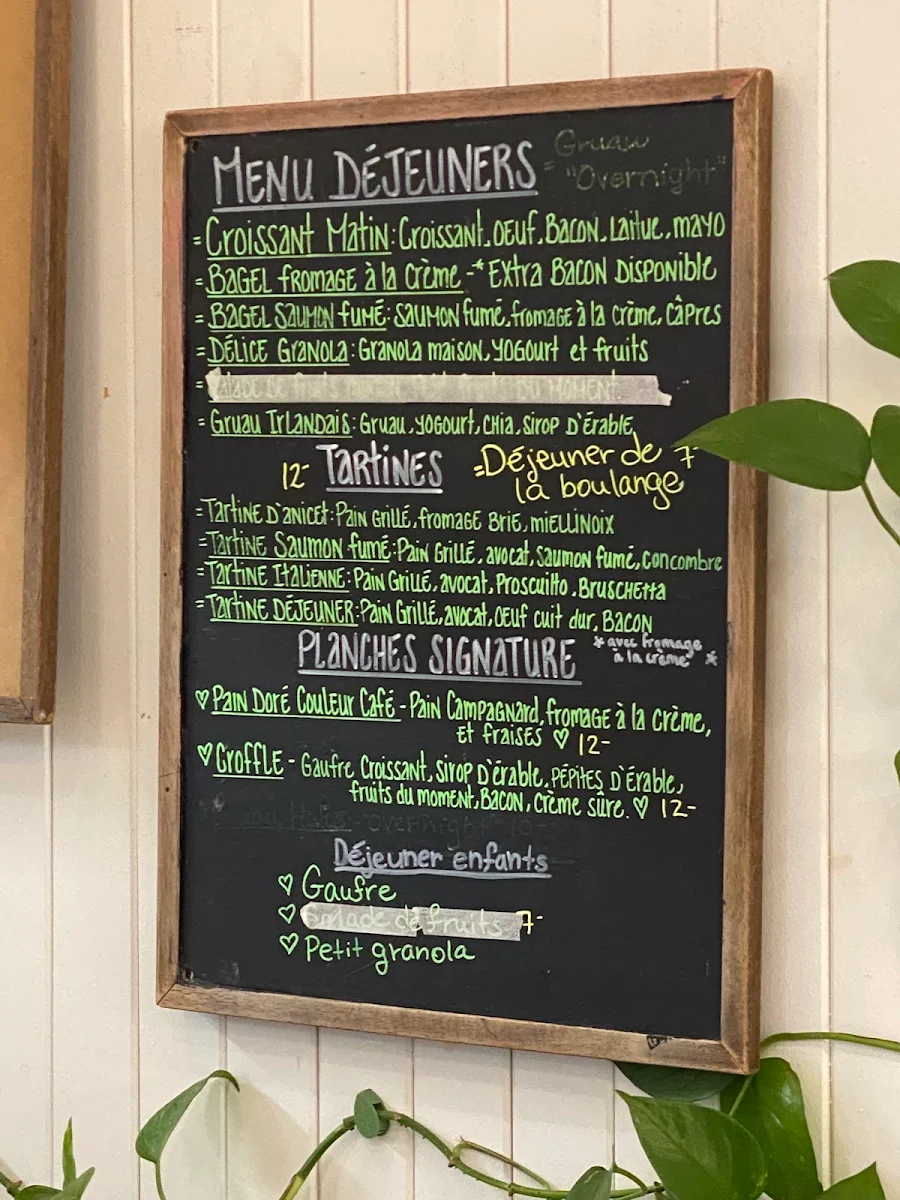 MENU DÉJEUNERS
= Gruau
"Overnight"
= Croissant Matin: Croissant, OEuf, Bacon, Laitue, mayo
= Bagel fromage à la Crème -* Extra Bacon Disponible
= Bagel Saumon fumé: Saumon fumé, fromage à la crème, câpres
= Délice Granola: Granola maison, yogourt et fruits
= Salade de fruits DU MOMENT
= Gruau Irlandais: Gruau, yogourt, chia, sirop d'érable
12- Tartines
= Déjeuner de 7-
la boulange
= Tartine d'anicet: Pain Grillé, fromage Brie, miellinoix
= Tartine Saumon fumé: Pain Grillé, avocat, saumon fumé, concombre
= Tartine Italienne: Pain Grillé, avocat, Proscuitto, Bruschetta
= Tartine Déjeuner: Pain Grillé, avocat, OEuf cuit dur, Bacon
* avec fromage
à la crème *
PLANCHES SIGNATURE
♡ Pain Doré Couleur Café - Pain Campagnard, fromage à la crème,
et fraises ♡ 12-
♡ Croffle - Gaufre Croissant, sirop d'érable, pépites d'érable,
fruits du moment, Bacon, crème sûre. ♡ 12-
"overnight" 10-
Déjeuner enfants
♡ Gaufre
♡ Salade de fruits 7-
♡ Petit granola